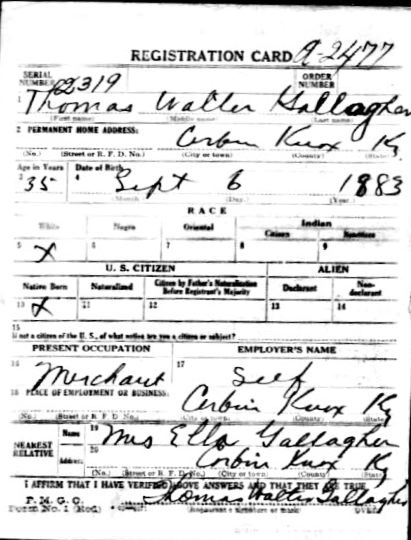 REGISTRATION CARD A-2477
SERIAL NUMBER 2319 ORDER NUMBER
1 Thomas Walter Gallagher
(First name) (Middle name) (Last name)
2 PERMANENT HOME ADDRESS: Corbin Knox Ky
(No.) (Street or R. F. D. No.) (City or town) (County) (State)
Age in Years Date of Birth
3 35 4 Sept 6 1883
(Month) (Day.) (Year.)
RACE
White Negro Oriental Indian
Citizen
5 X 6 7 8 9
U. S. CITIZEN ALIEN
Native Born Naturalized Citizen by Father's Naturalization Before Registrant's Majority Declarant Non-declarant
10 X 11 12 13 14
15
If not a citizen of the U. S., of what nation are you a citizen or subject?
PRESENT OCCUPATION EMPLOYER'S NAME
16 Merchant 17 Self
18 PLACE OF EMPLOYMENT OR BUSINESS: Corbin Knox Ky
(No.) (Street or R. F. D. No.) (City or town) (County) (State)
NEAREST RELATIVE Name 19 Mrs Ella Gallagher
Address 20 Corbin Knox Ky
(No.) (Street or R. F. D. No.) (City or town) (County) (State)
I AFFIRM THAT I HAVE VERIFIED ABOVE ANSWERS AND THAT THEY ARE TRUE
P. M. G. O.
Form No. 1 (Red) Thomas Walter Gallagher
(Registrant's signature or mark) (OVER)